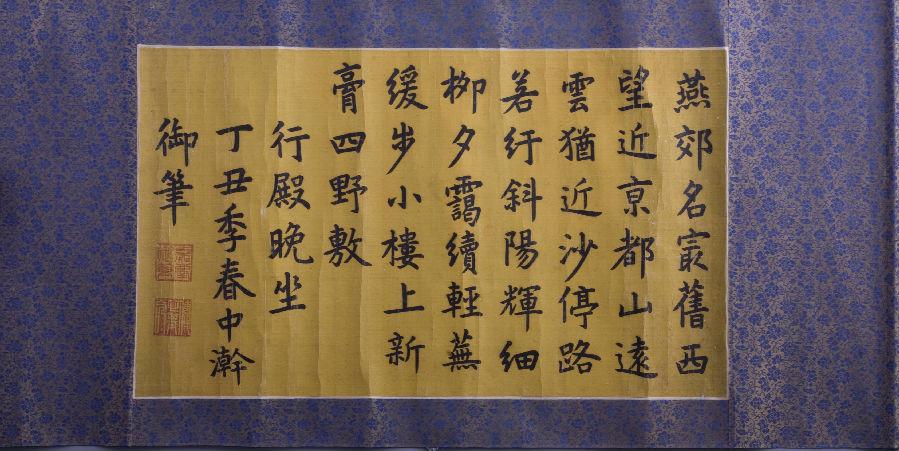 燕郊名㝡舊西
望近亰都山遠
雲猶近沙停路
若紆斜陽輝細
栁夕靄續輕蕪
緩步小樓上新
膏四野敷
行殿晚坐
丁丑季春中澣
御筆